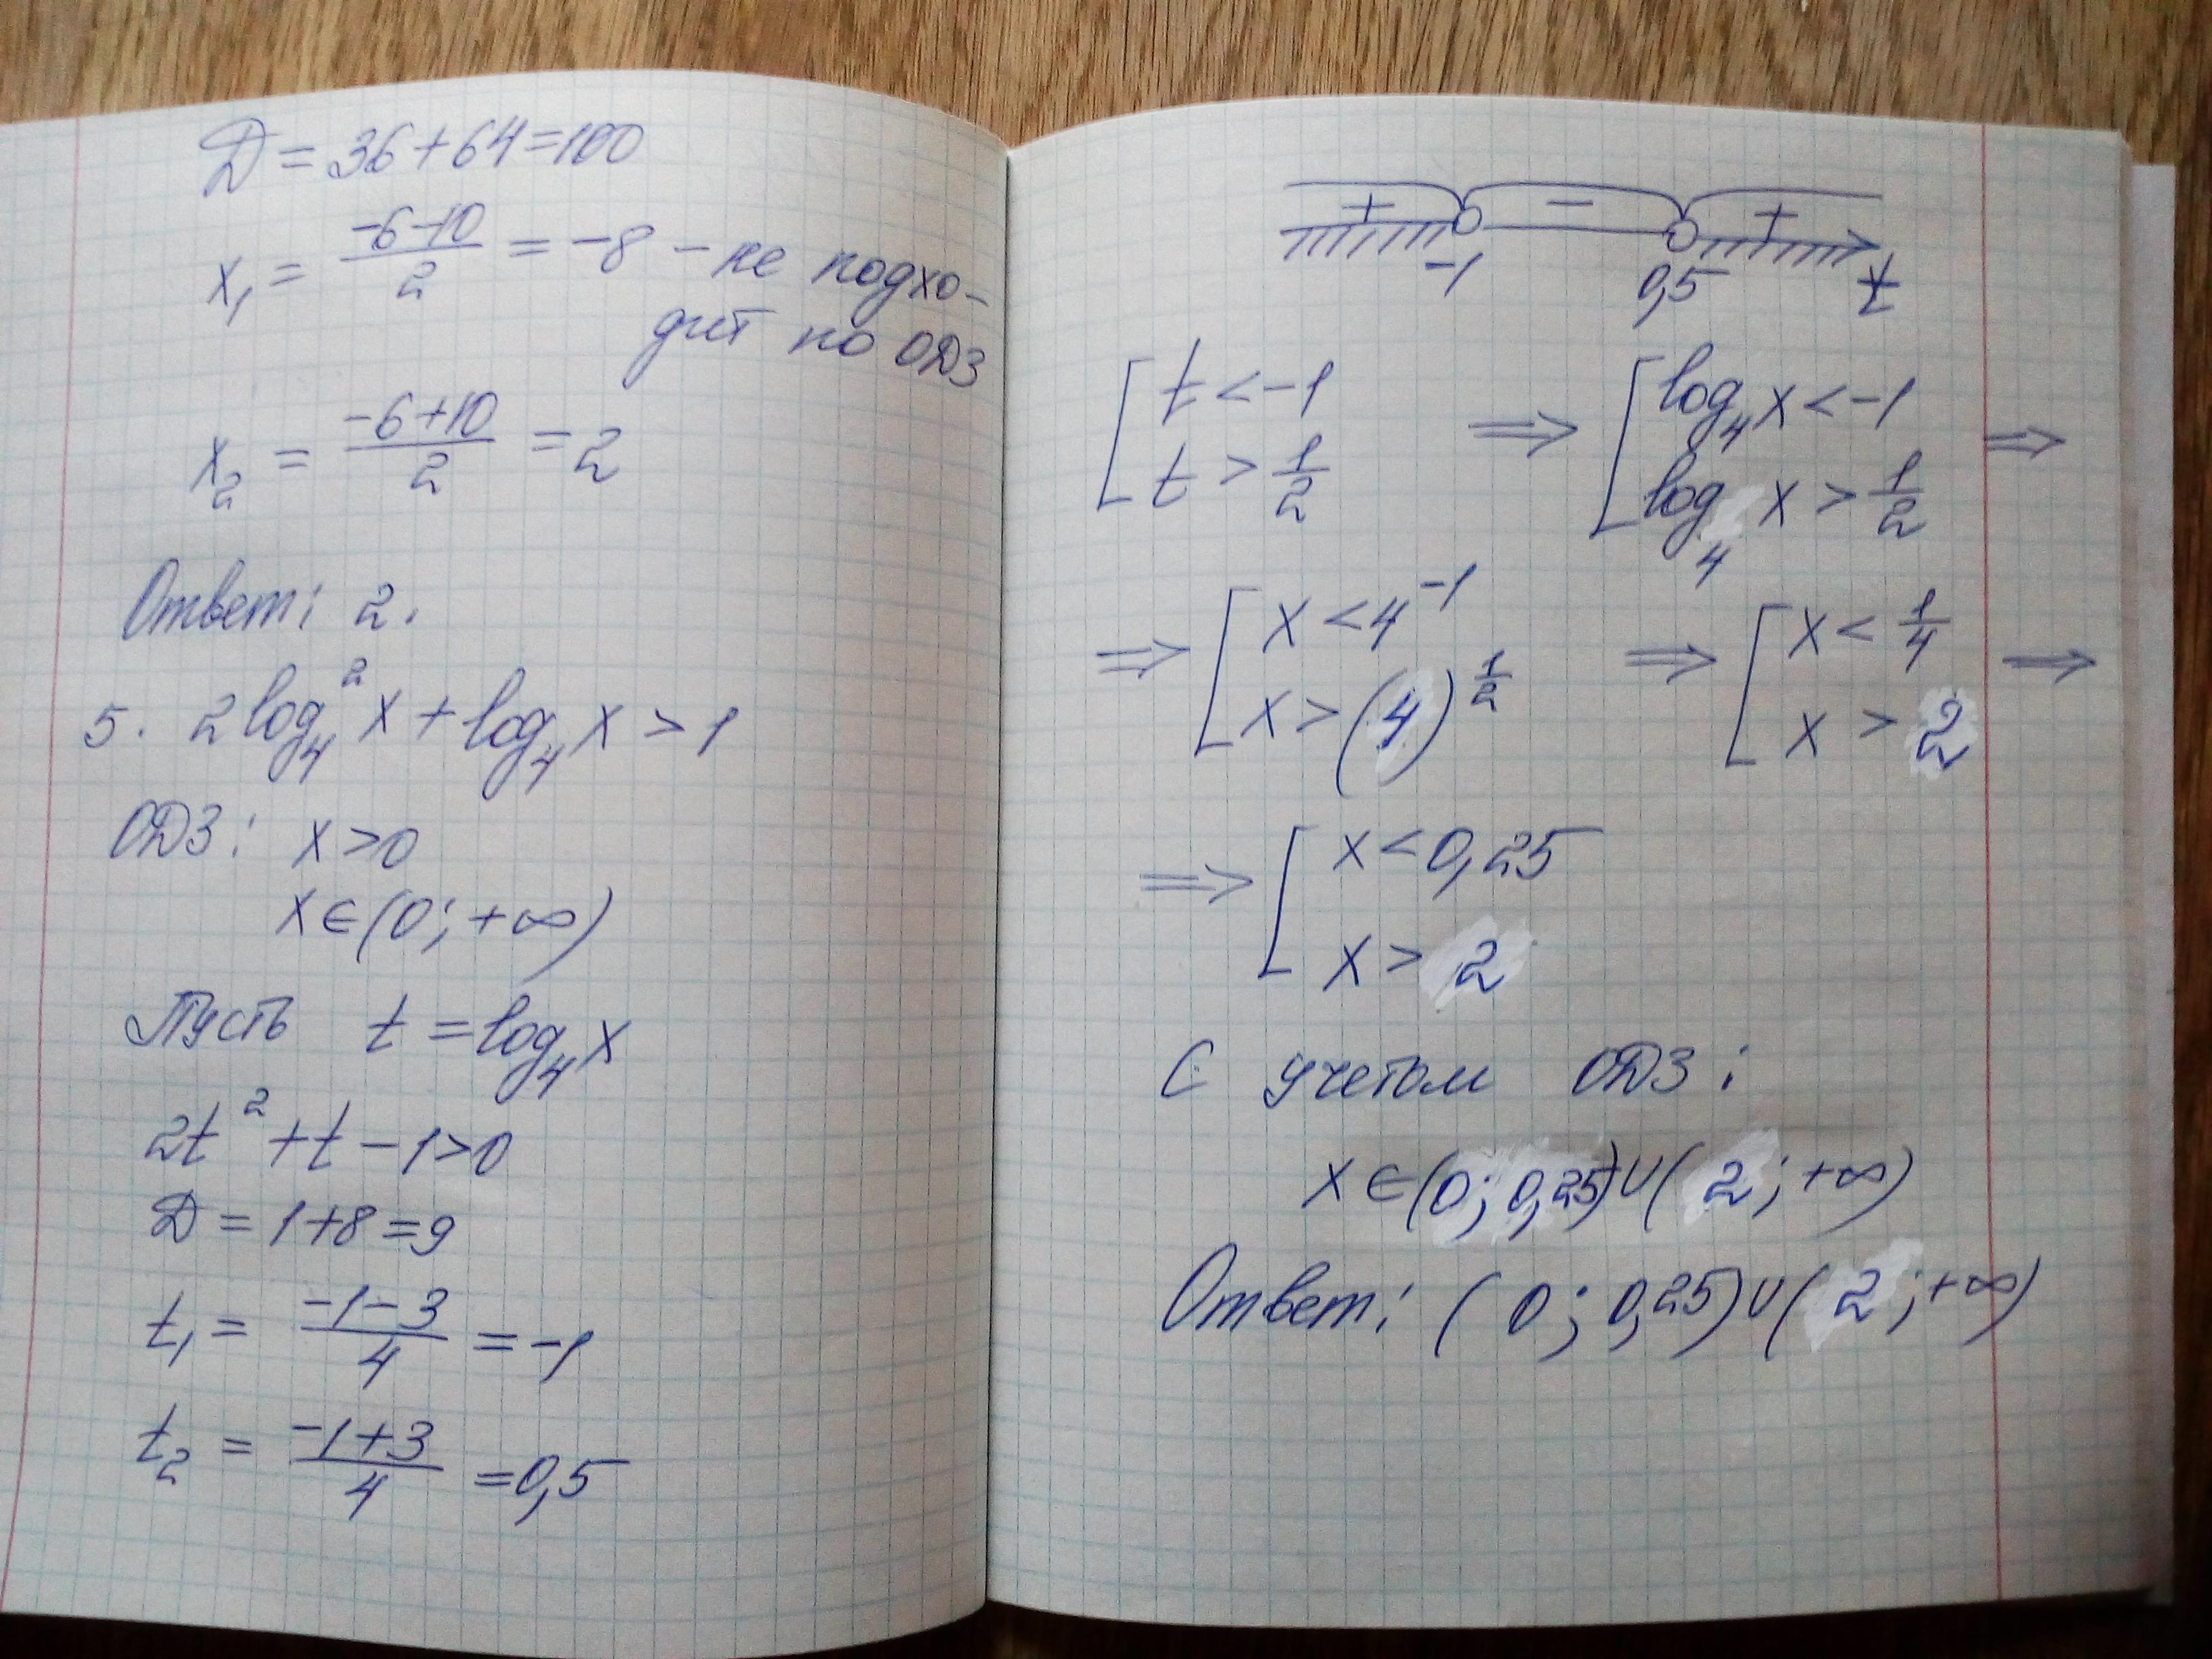 Д = 36 + 64 = 100
x₁ = (-6-10)/2 = -8 - не подхо-
дит по ОДЗ
x₂ = (-6+10)/2 = 2
Ответ: 2.
5. 2log₄²x + log₄x > 1
ОДЗ: x > 0
x ∈ (0; +∞)
Пусть t = log₄x
2t² + t - 1 > 0
Д = 1 + 8 = 9
t₁ = (-1-3)/4 = -1
t₂ = (-1+3)/4 = 0,5
+ - +
-1 0,5 t
[ t < -1 ⟹ [ log₄x < -1 ⟹
t > 1/2 log₄x > 1/2
⟹ [ x < 4⁻¹ ⟹ [ x < 1/4 ⟹
x > (4)^(1/2) x > 2
⟹ [ x < 0,25
x > 2
С учетом ОДЗ:
x ∈ (0; 0,25) ∪ (2; +∞)
Ответ: (0; 0,25) ∪ (2; +∞)